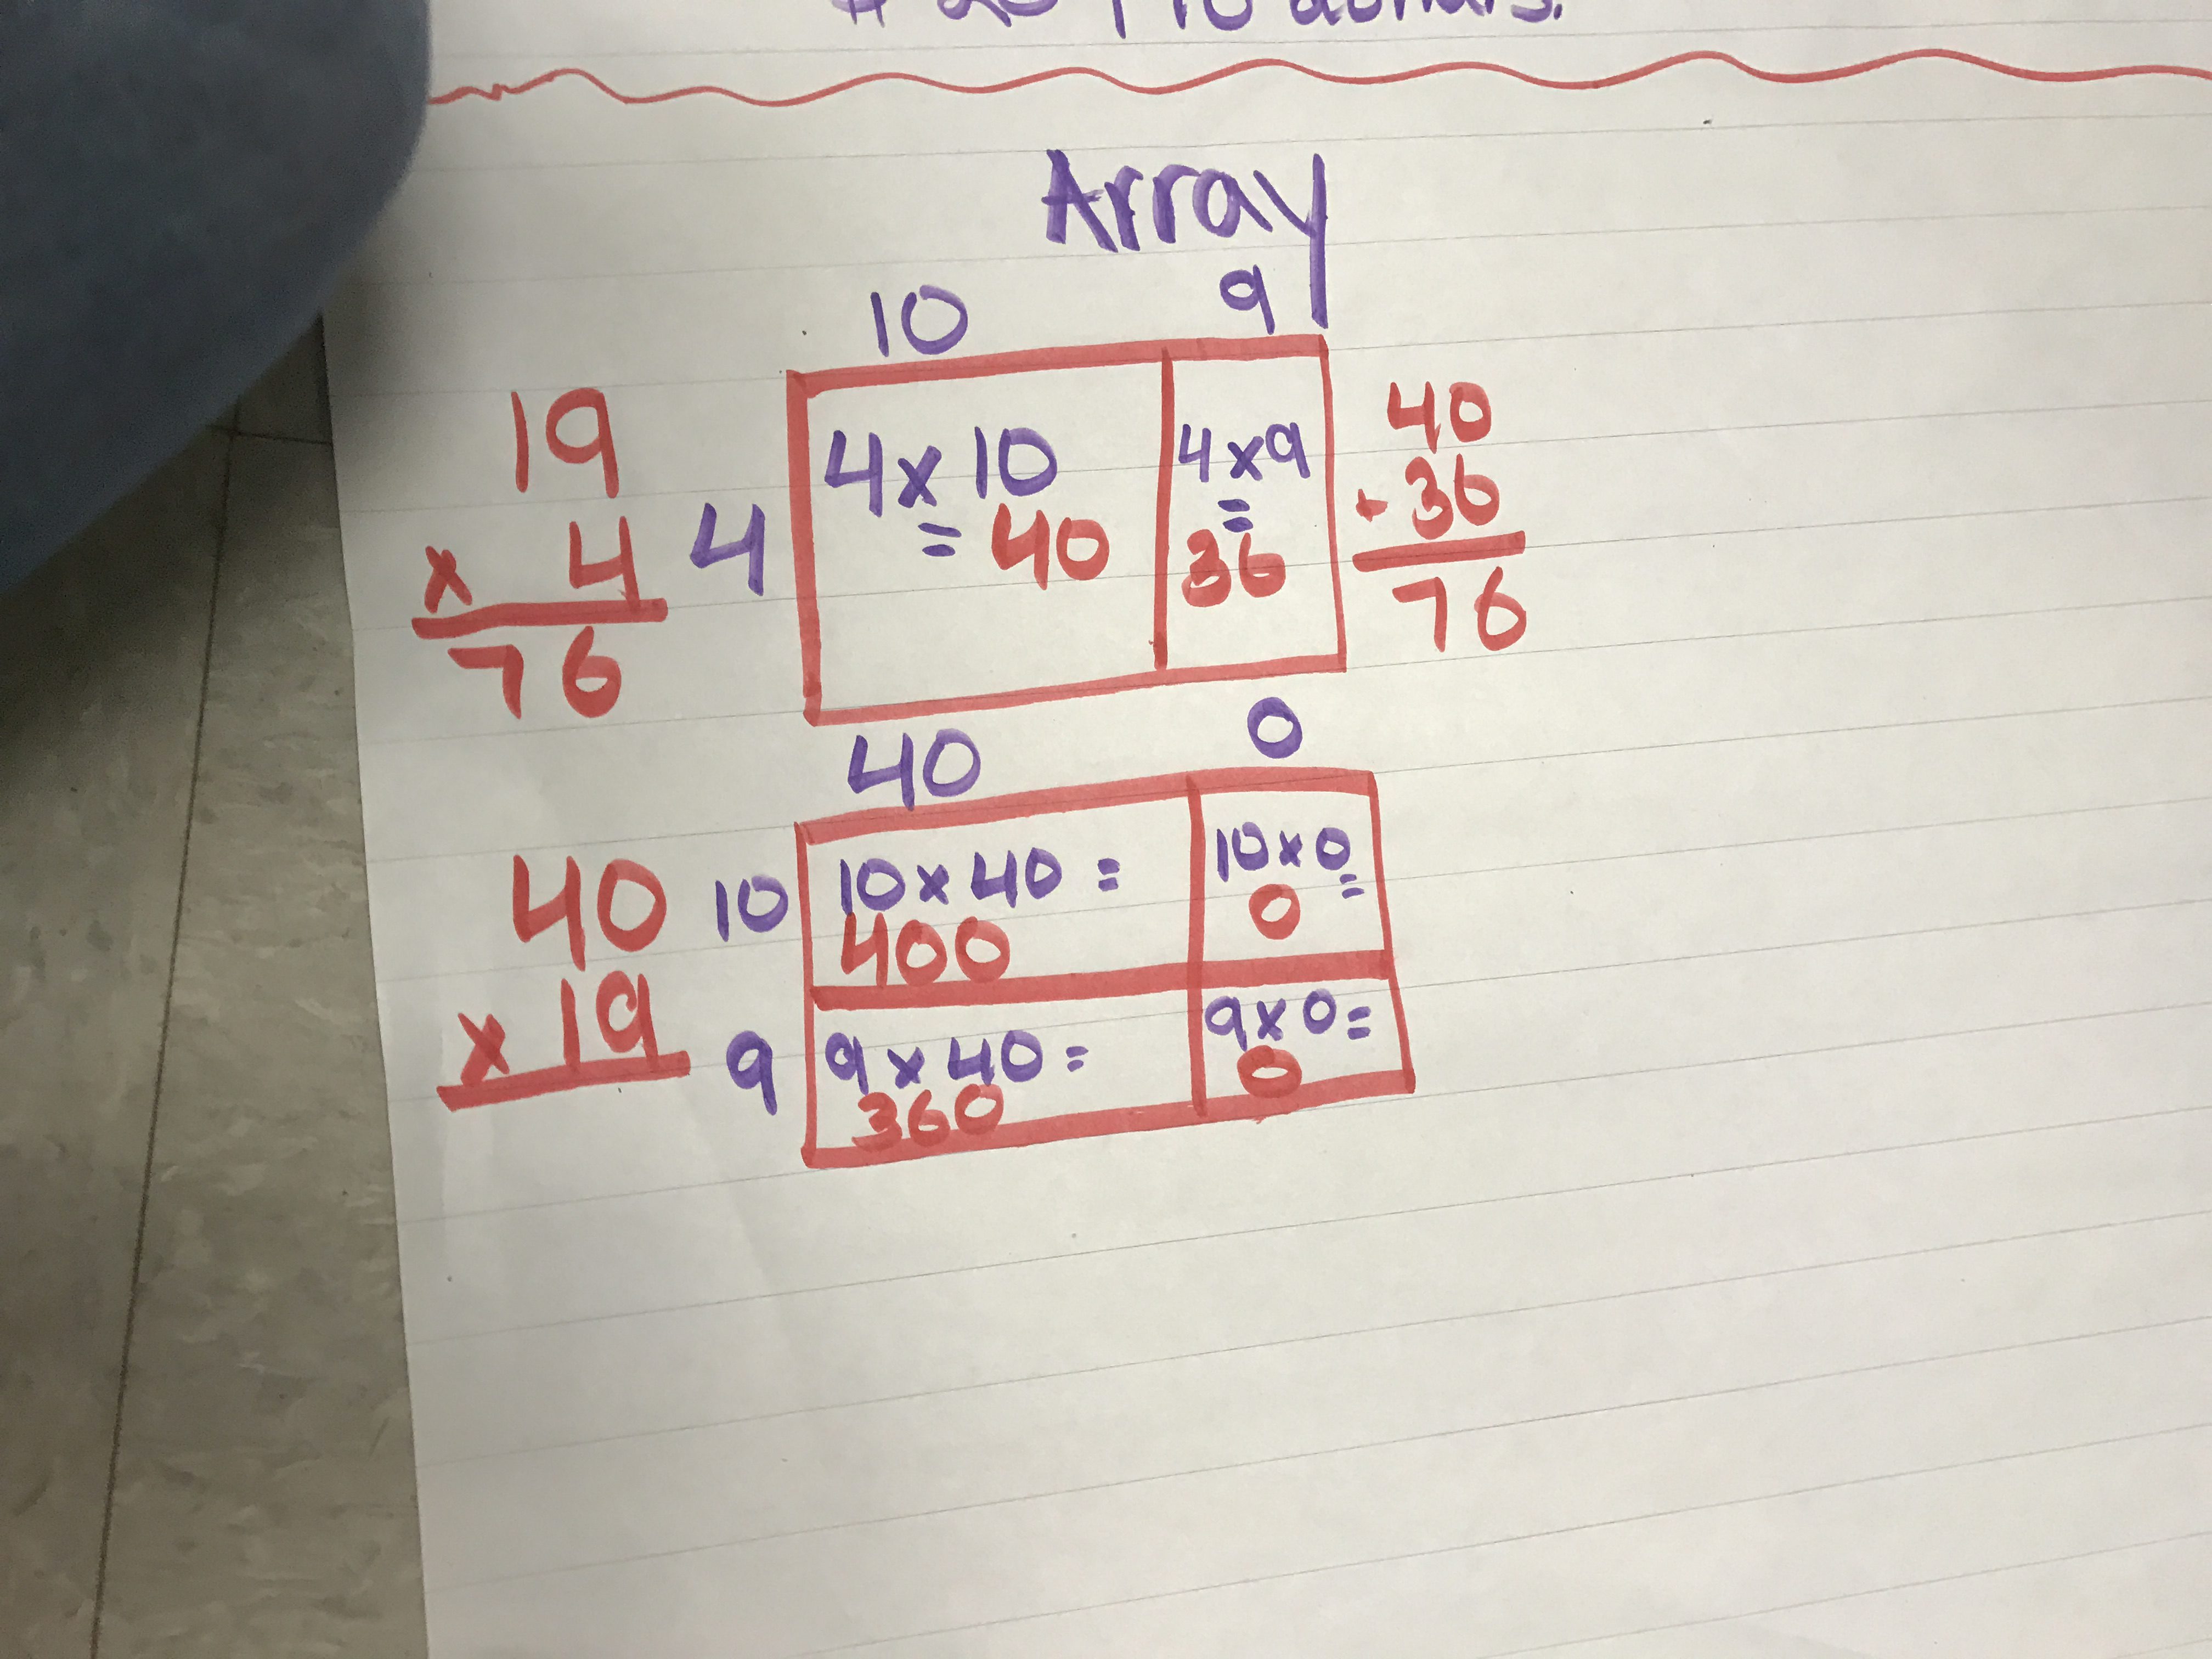 Array
10 9
19
x 4
76
4
4x10
= 40
4x9
=
36
40
+36
76
40 0
40
x 19
10
10x40 =
400
10x0
=
0
9
9x40=
360
9x0=
0